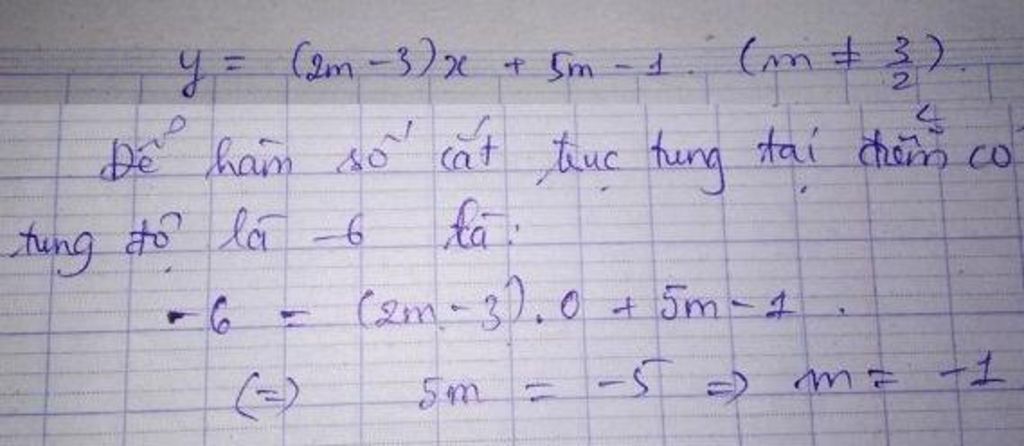 y = (2m - 3)x + 5m - 1. (m ≠ 3/2).
Để hàm số cắt trục tung tại điểm có
tung độ là -6 là:
-6 = (2m - 3).0 + 5m - 1.
(=) 5m = -5 => m = -1